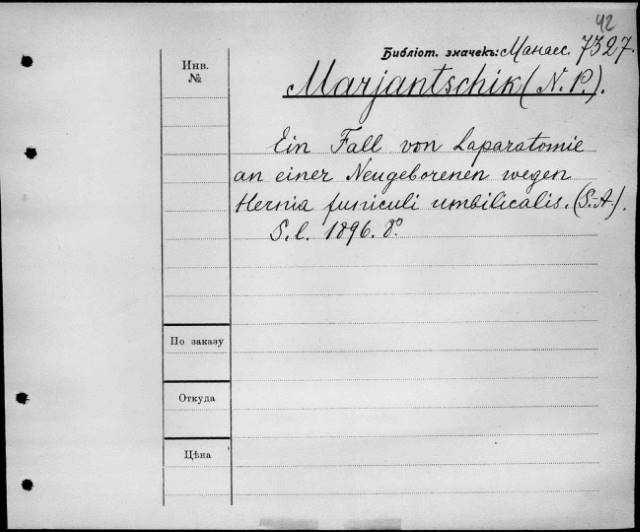 42
Библіот. значекъ: Манасс. 7327.
Инв.
№
Marjantschik (N. P.).
Ein Fall von Laparatomie
an einer Neugeborenen wegen
Hernia funiculi umbilicalis. (S.-A.).
S. l. 1896. 8°
По заказу
Откуда
Цѣна